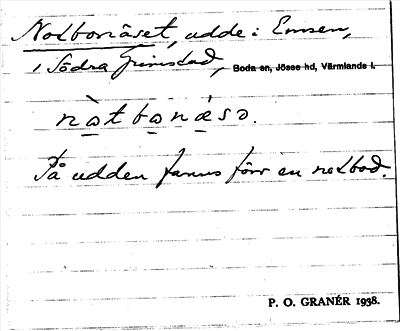 Notbonäset, udde i Emsen,
i Södra Grimstad, Boda sn, Jösse hd, Värmlands l.
nòtbonäsə.
På udden fanns förr en notbod.
P. O. GRANÉR 1938.